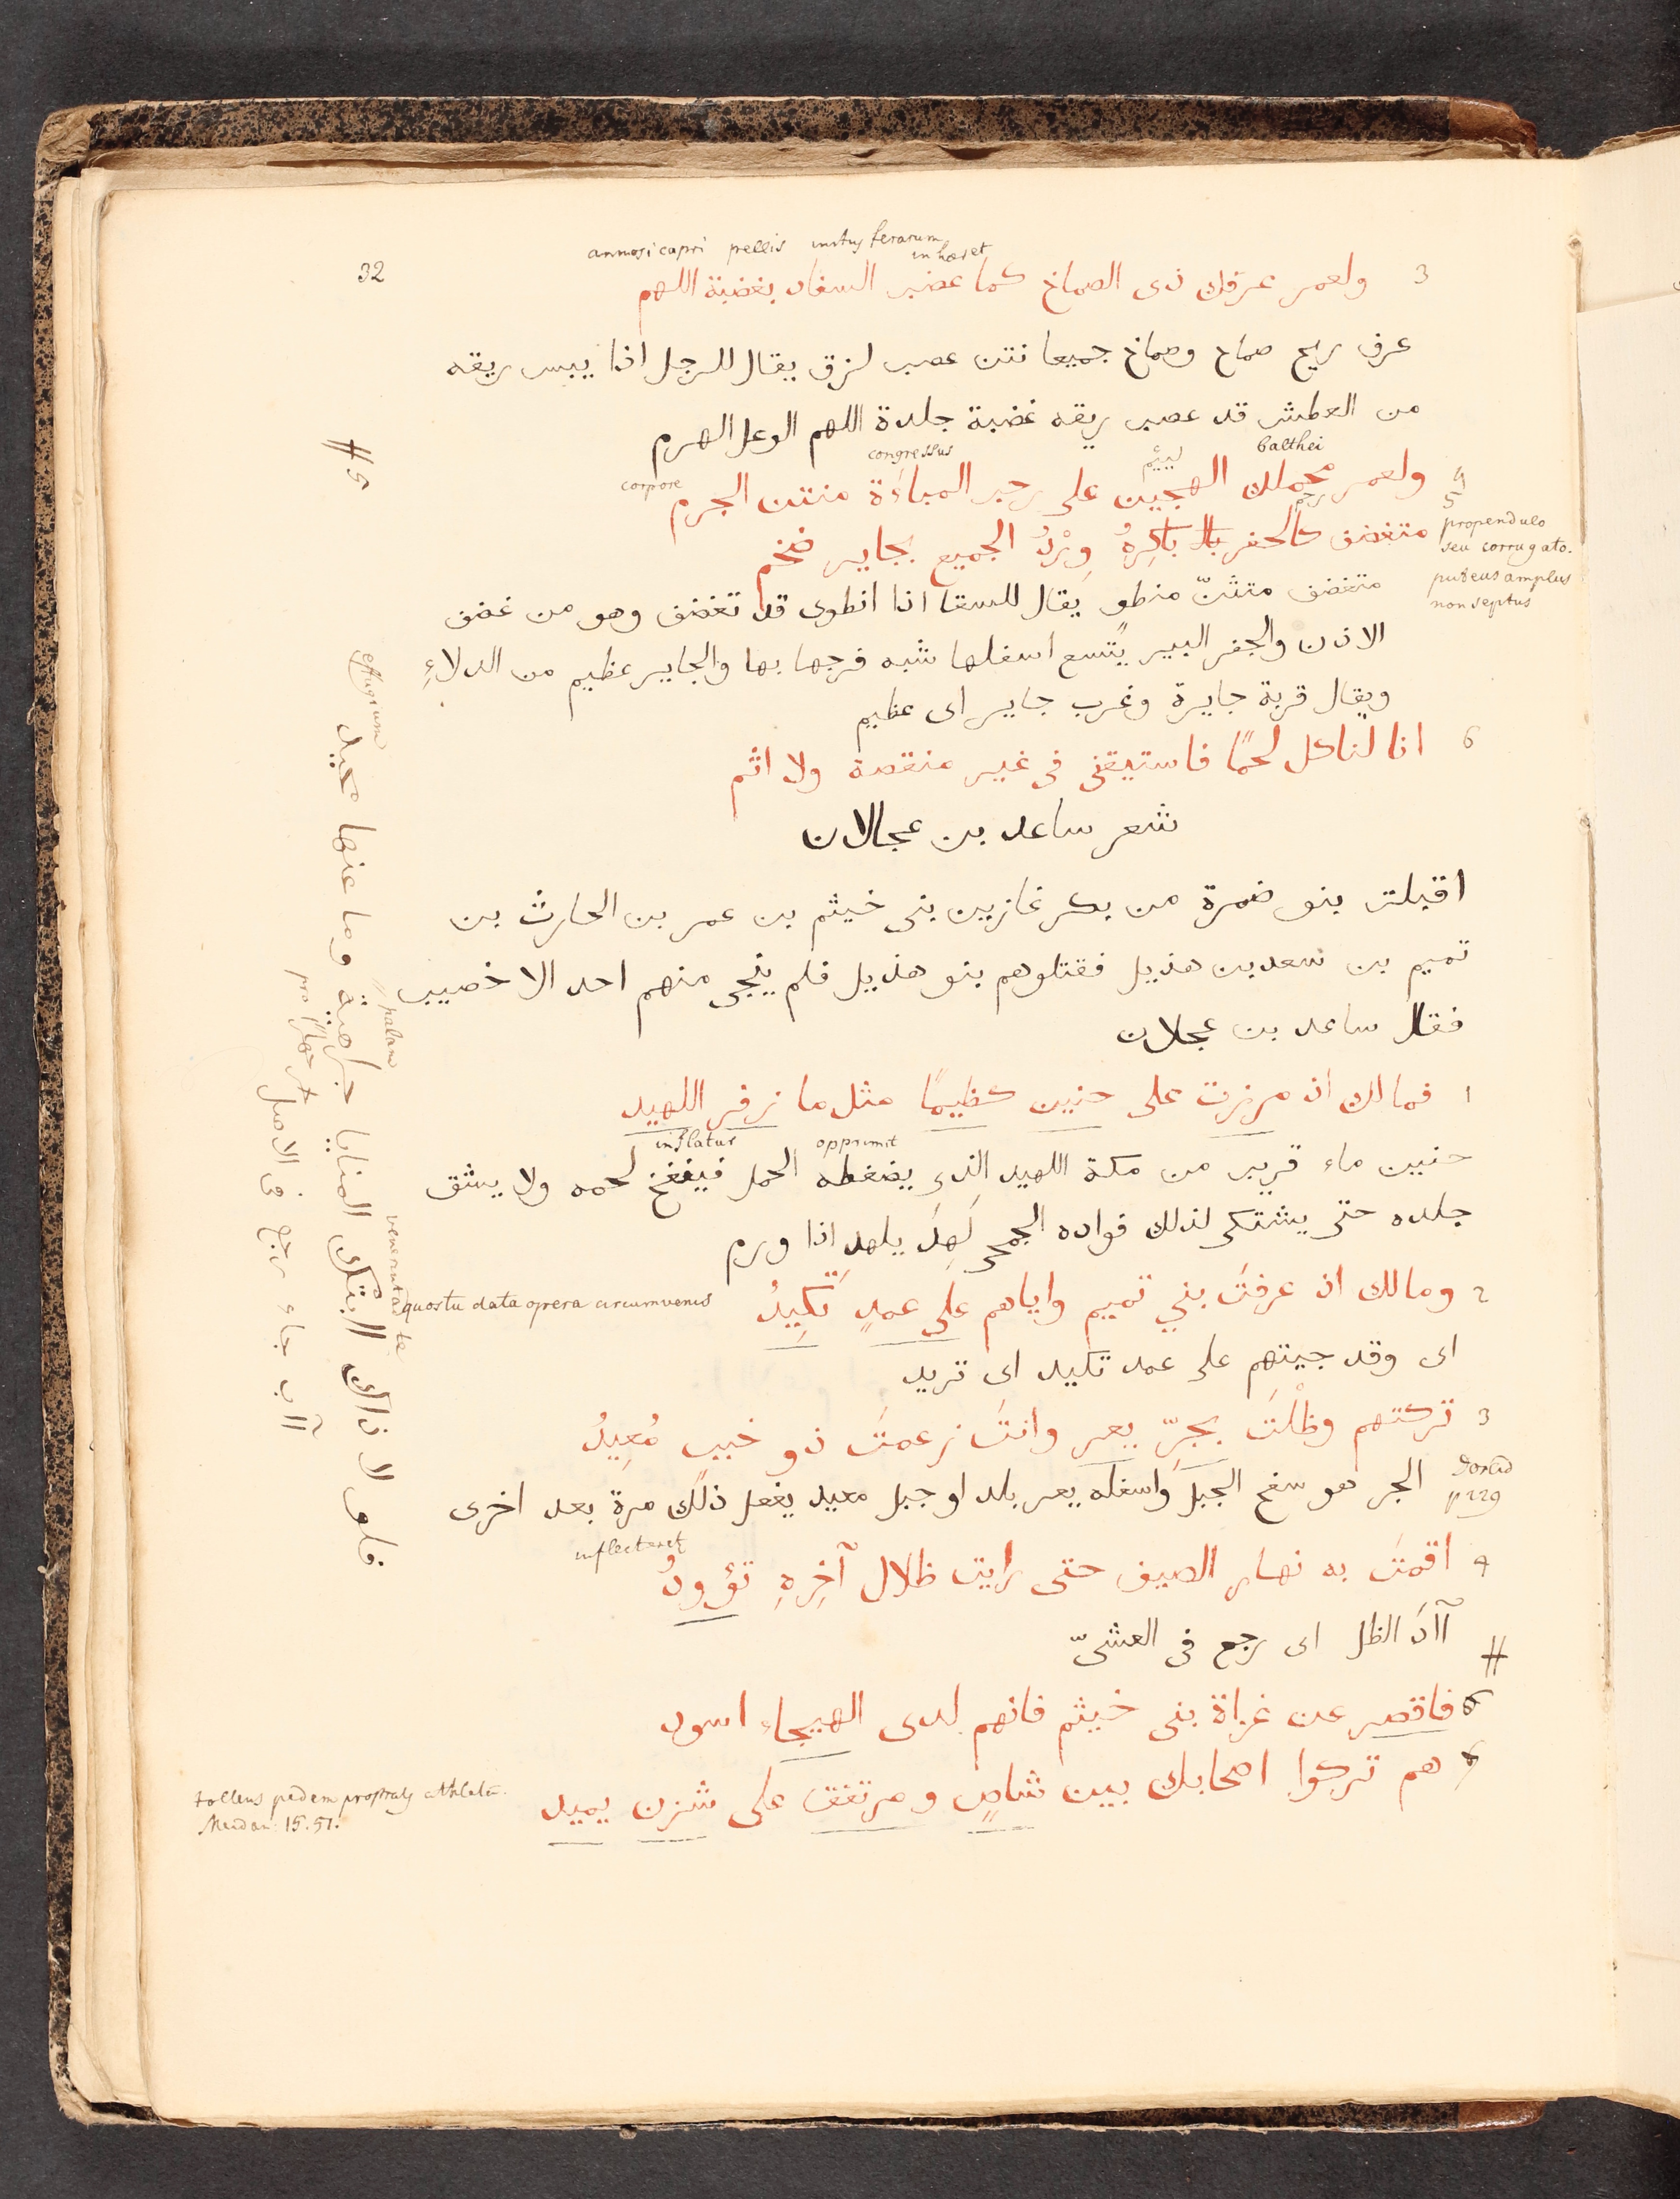 32
annosi capri pellis instus ferarum
inhaeret
3 ولعمر عرفك ذى الصماخ كما عضب السفاد بغضبة اللهم
عرف ريح صماح وصماخ جميعا نتن عصب لزق يقال للرجل اذا يبس ريقه
من العطش قد عصب ريقه غضبة جلدة اللهم الوعل الهرم
balthei
congressus
corpore
4 ولعمر محملك الهجين على رحب المباءة منتن الجرم
5 متغضف كالحفر باكره ورد الجميع بجاير ضخم
propendulo
seu corrugato.
puteus amplus
non septus
متغضف متثنّ منطو يقال للسقا اذا انطوى قد تغضف وهو من غضف
الاذن والجفر البير يتسع اسفلها شبه فرجها بها والجاير عظيم من الدلاءِ
ويقال قربة جايرة وغرب جاير اى عظيم
6 انا لناكل لحمًا فاستيقنى فى غير منقصة ولا اثم
شعر ساعد بن عجالان
اقبلت بنو ضمرة من بكر غازين بنى خيثم بن عمر بن الحارث بن
تميم بن سعد بن هذيل فقتلوهم بنو هذيل فلم ينجى منهم احد الا خصيب
فقال ساعد بن عجلان
1 فمالك اذ مررت على حنين كظيمًا مثل ما زفر اللهيد
inflatus
opprimit
حنين ماء قريب من مكة اللهيد الذى يضغطه الحمل فيفغخ لحمه ولا يشق
جلده حتى يشتكى لذلك فواده الجمحى لَهِدَ يلهد اذا ورم
2 ومالك اذ عرفتَ بنى تميم واياهم على عمدٍ تَكِيدُ
quos tu data opera circumvenis
اى وقد جيتهم على عمد تكيد اى تريد
3 تركتهم وظلْتَ بجرّ يعر وانتَ زعمتَ ذو خبب مُعِيدُ
الجر هو سفح الجبل واسفله يعر بلد او جبل معيد يفعل ذلك مرة بعد اخرى
inflecteret
4 اقمتَ به نهار الصيف حتى رايت ظلال آخِرِهِ تؤودُ
آادَ الظل اى رجع فى العشىّ
#
6 فاقصر عن غزاة بنى خيثم فانهم لدى الهيجاء اسود
هم تركوا اصحابك بين شاصٍ ومرتفق على شزن يميد
tollens pedem
Meidan: 15. 51.
# 5
effugium
palam
فلو لا ذاك آبتك المنايا جراهية وما عنها محيد
آاب جاء رجع فى الاصل
pro